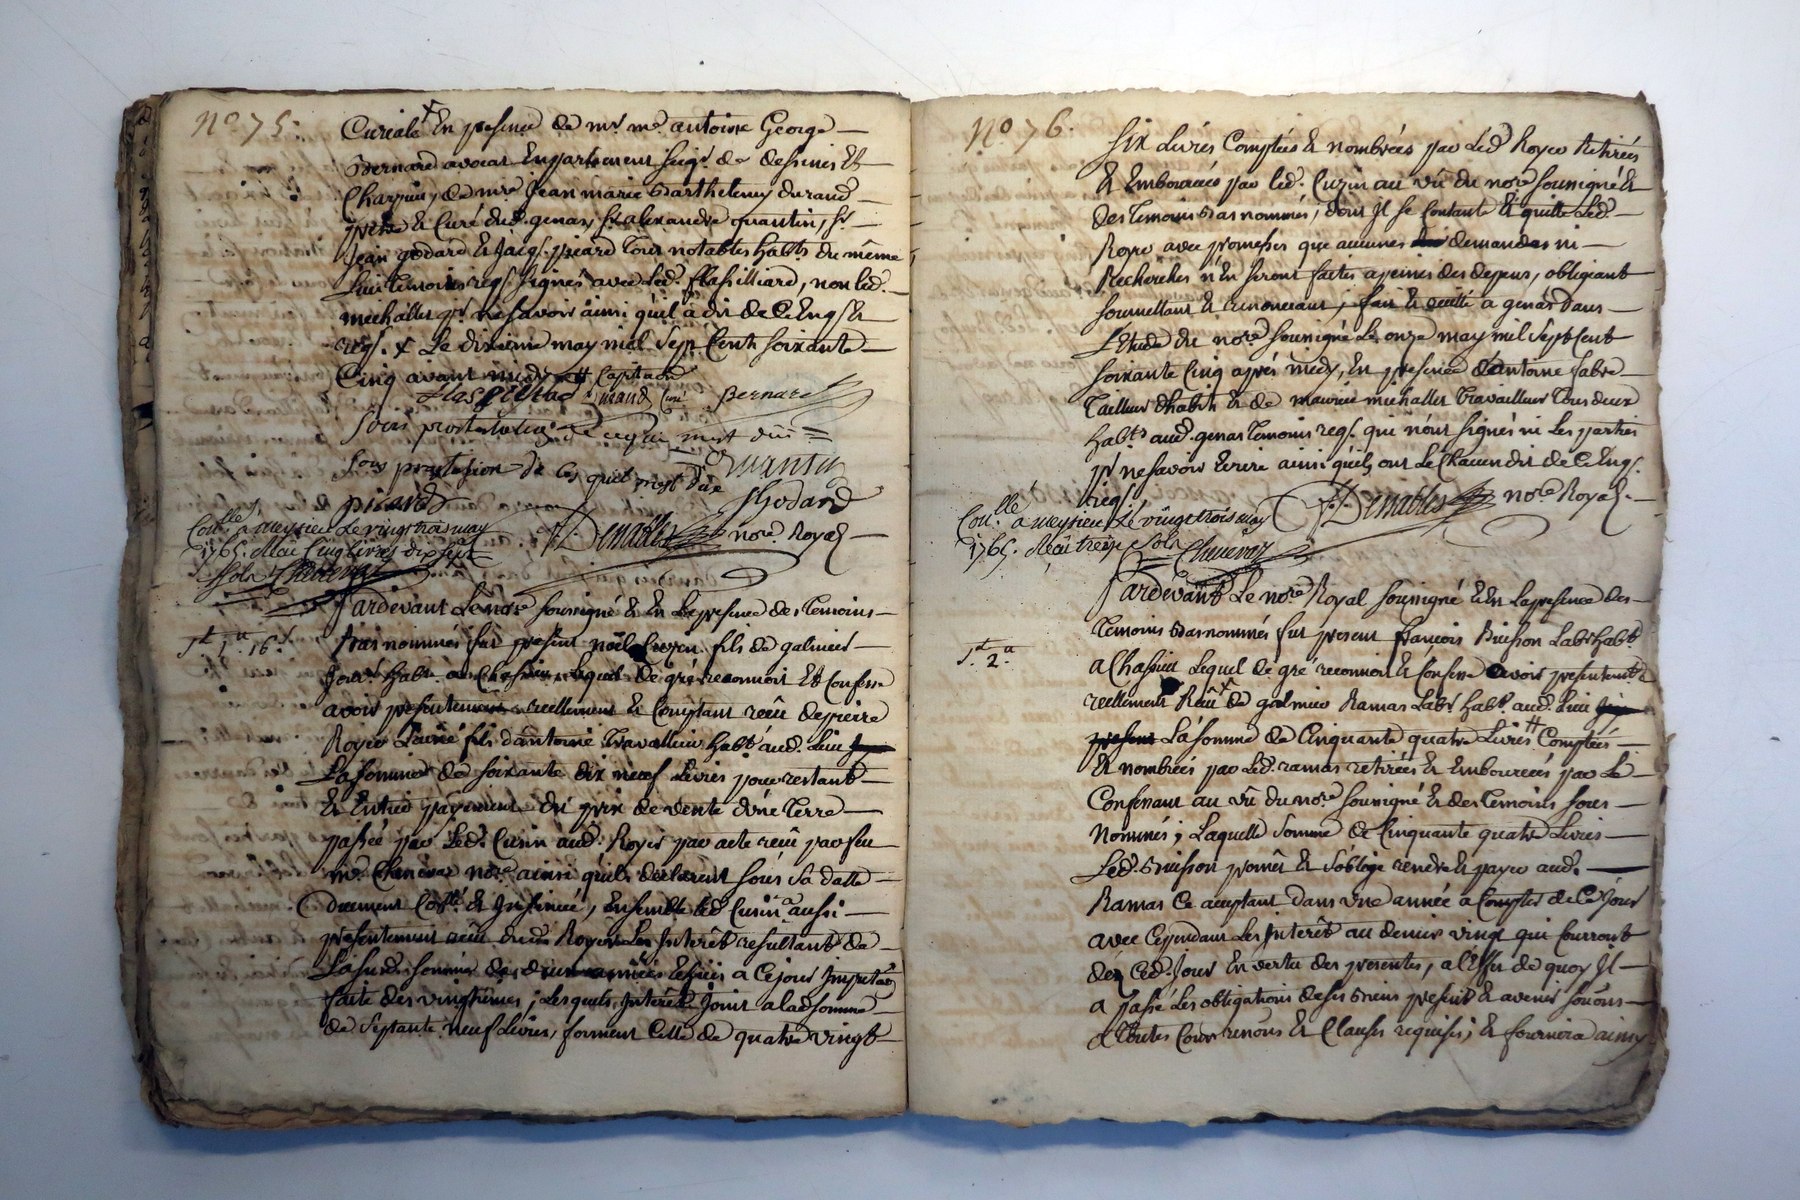 No 75.
Curiale + En presence de mr. me. antoine George
Bernard avocat En parlement seigr. de dessines Et
Charpieu, de mre. Jean marie Barthelemy durand
prêtre & Curé dud. genas, sr. alexandre quantin, sr.
Jean godard & Jacq. picard tous notables habts. du même
Lieu temoins reqs. signés avec Led. flassilliard, non led.
michallet pr. ne savoir ainsi qu'il a dit de ce Enqs. Et
reqs. x Le dixieme may mil Sept Cents soixante
Cinq avant midy
Durand Curé Bernard
Sous protestation de ce qui m'est dûe
Quantin
Sous protestation de ce quil m'est düe
picard JGodard
Conllé. à meysieu Le vingt trois may
1765. Recu Cinq livres dix sept
sols Chenevaz
Demables nore. Royal
Pardevant Le nore. soussigné & En La presence des Temoins
st. 1ll. 16s.
bas nommés fut present noël Cuzin fils de galmier
habt. a Chassieu Lequel de gré reconnoit Et Confesse
avoir presentement reellement & Comptant recû de pierre
Royer L'ainé fils d'antoine travailleur habt. aud. Lieu
La somme de soixante dix neuf Livres pour restant
& Entier payement du prix de vente d'une Terre
passée par Led. Cuzin aud. Royer par acte recû par feu
me. Chenevaz nore. ainsi qu'ils declarent sous sa datte
Duement Collé. & Insinué, Ensemble led. Cuzin a aussi
presentement recû dud. Royer Les Interêt resultant de
La sud. somme des deux années echuës a Ce jour Imputaôn
faite des vingtiemes; Lesquels Interêts Joint a lad. somme
de septante neuf Livres, forment Celle de quatre vingt
No 76.
six Livres Comptées & nombrées par Led. Royer Retirées
& Emboursées par led. Cuzin au vû du nore. soussigné &
des temoins bas nommés, dont Il se Contante & quitte Led.
Royer avec promesses que aucunes demandes ni
Recherches n'En seront faites a peines des depens, obligeant
soumettant & renonceant; fait & recitté a genas dans
L'étude du nore. soussigné Le onze may mil Sept Cent
soixante Cinq aprés midy, En presence d'antoine fabre
Tailleur d'habits & de maurice michallet travailleur tous deux
habts. aud. genas temoins reqs. qui n'ont signés ni Les parties
pr. ne savoir Ecrire ainsi qu'ils ont Le Chacun dit de ce Enqs.
reqs.
Demables nore. Royal.
Conllé. à meysieu Le vingt trois may
1765. Recû treize sols Chenevaz
Pardevant Le nore. Royal soussigné & En La presence des
st. 2ll.
temoins bas nommés fut present françois Buisson Labr. habt.
a Chassieu Lequel de gré reconnoit & Confesse avoir presentement
reellement Recû + de galmier Ramas Labr. habt. aud. Lieu
present La somme de Cinquante quatre Livres # Comptées
& nombrées par Led. ramas retirées & Emboursées par Le
Confessant au vû du nore. soussigné & des temoins sous
nommés; Laquelle somme de Cinquante quatre Livres
Led. Buisson promet & s'oblige rendre & payer aud.
Ramas Ce acceptant dans une année a Compter de Ce jour
avec Cependant Les Interêt au denier vingt qui Courront
dés Ced. Jour En vertu des presentes, a l'Effet de quoy Il
a passé Les obligations de ses biens presents & avenir soûons
à toutes Cours renons & Clauses requises; & fournira ainsy